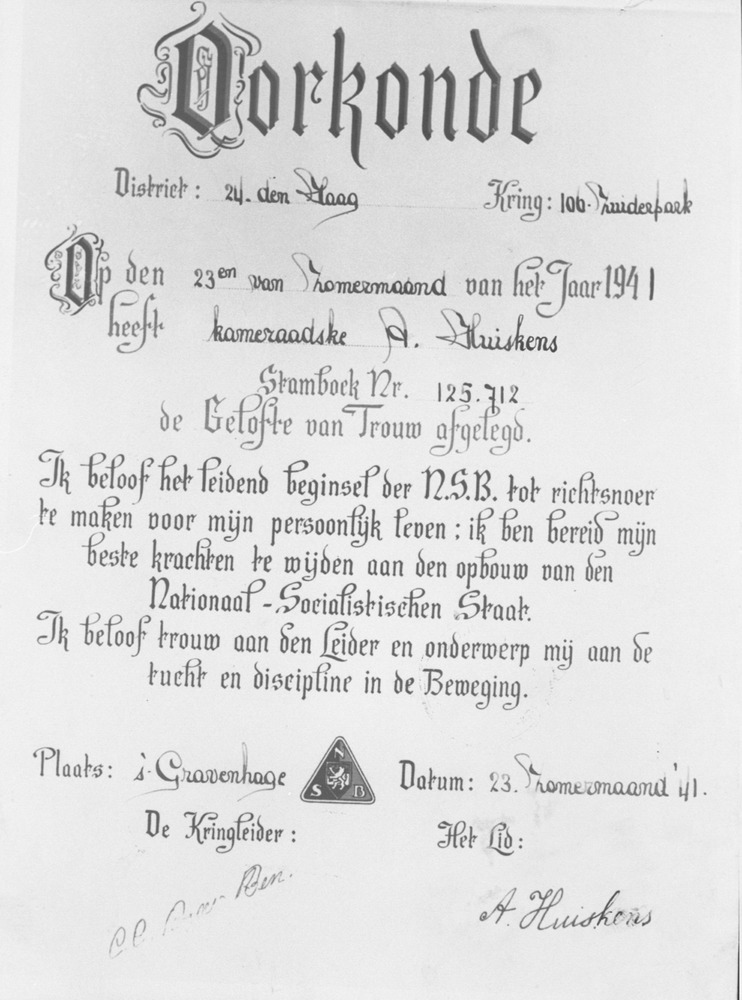 Oorkonde
District: 24. den Haag Kring: 106. Zuiderpark
Op den 23en van Zomermaand van het Jaar 1941
heeft kameraadske A. Huiskens
Stamboek Nr. 125.712
de Gelofte van Trouw afgelegd.
Ik beloof het leidend beginsel der N.S.B. tot richtsnoer
te maken voor mijn persoonlijk leven; ik ben bereid mijn
beste krachten te wijden aan den opbouw van den
Nationaal-Socialistischen Staat.
Ik beloof trouw aan den Leider en onderwerp mij aan de
tucht en discipline in de Beweging.
Plaats: 's-Gravenhage N S B Datum: 23. Zomermaand '41.
De Kringleider: Het Lid:
A. Huiskens